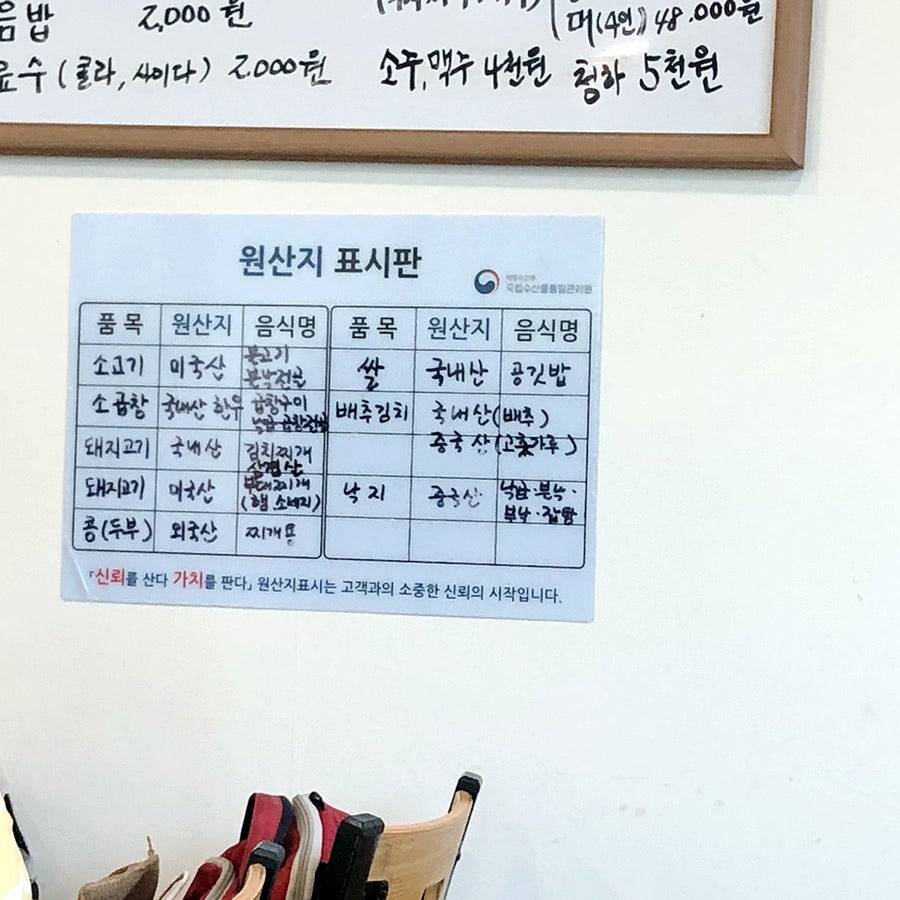 음밥 2,000원
대(4인) 48.000원
료수 (콜라, 사이다) 2.000원 소주, 맥주 4천원 청하 5천원
원산지 표시판
국립수산물품질관리원
품 목 원산지 음식명 품 목 원산지 음식명
소고기 미국산 불고기 불낙전골 쌀 국내산 공깃밥
소곱창 국내산 한우 곱창구이 낙곱 곱창전골 배추김치 국내산 (배추)
중국산 (고춧가루)
돼지고기 국내산 김치찌개 삼겹살
돼지고기 미국산 부대찌개 (햄 소세지) 낙지 중국산 낙곱·불낙·
콩(두부) 외국산 찌개용
「신뢰를 산다 가치를 판다」 원산지표시는 고객과의 소중한 신뢰의 시작입니다.